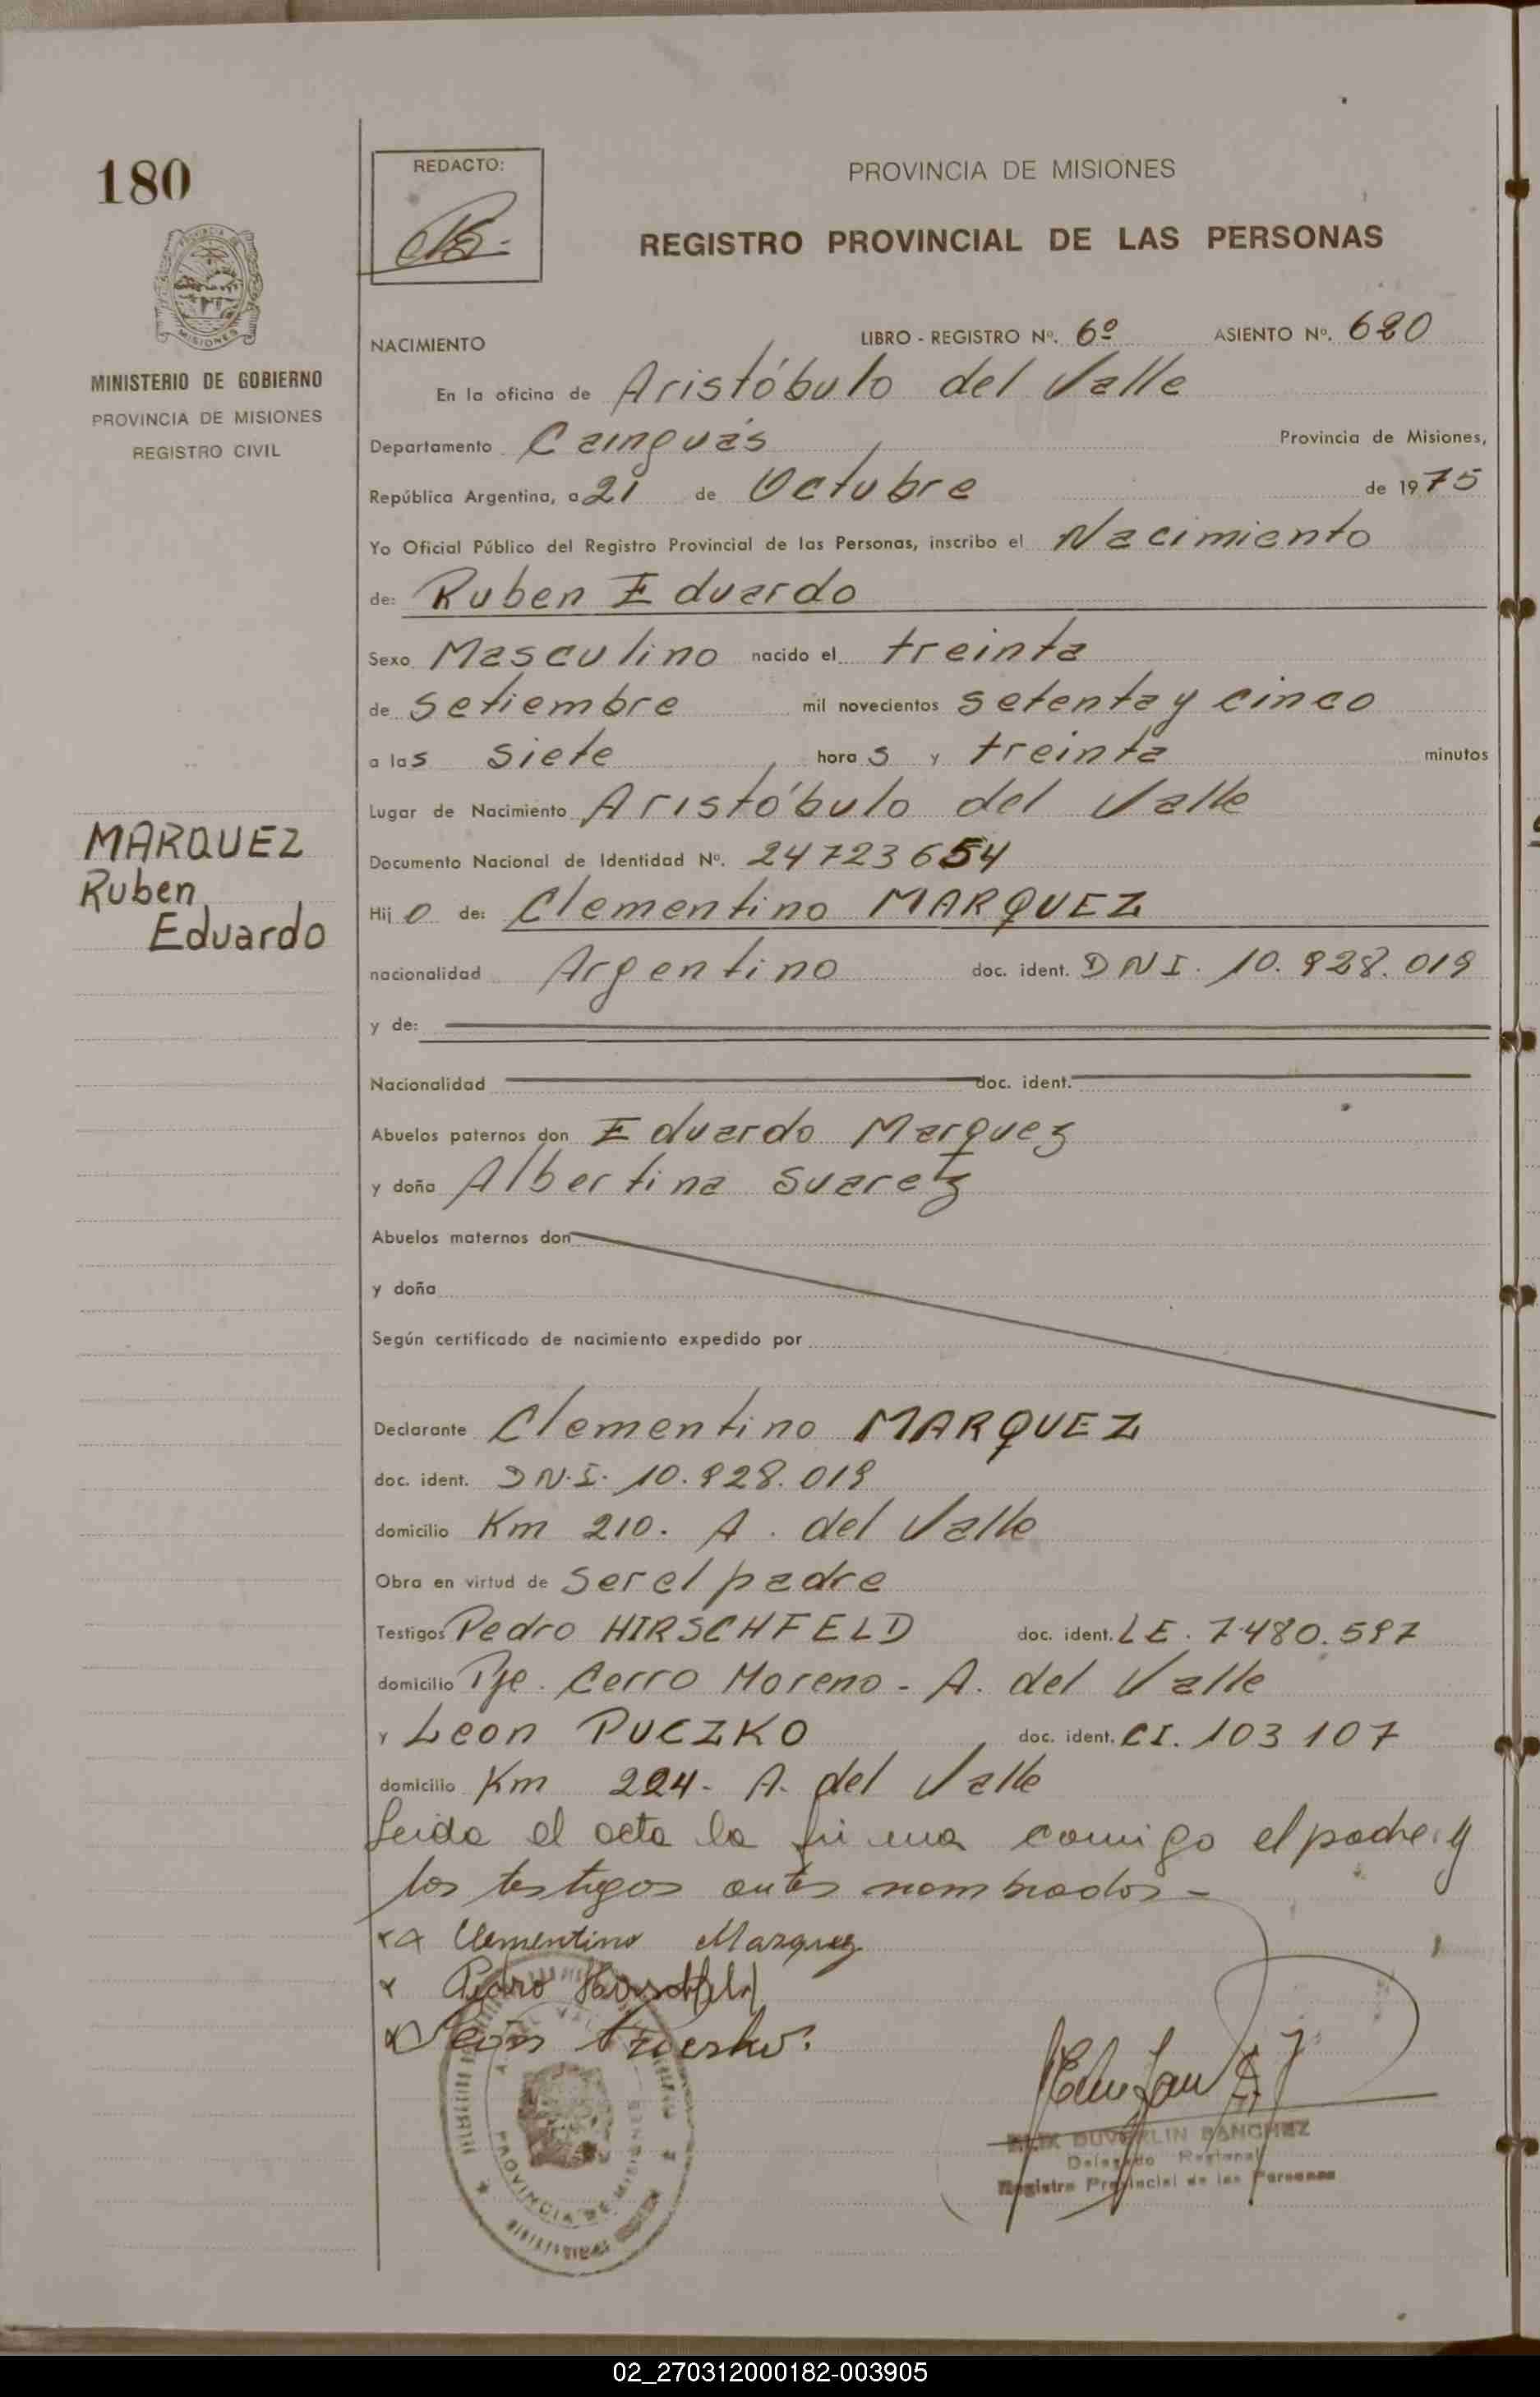 180
REDACTO:
PROVINCIA DE MISIONES
REGISTRO PROVINCIAL DE LAS PERSONAS
PROVINCIA DE
MISIONES
MINISTERIO DE GOBIERNO
PROVINCIA DE MISIONES
REGISTRO CIVIL
NACIMIENTO LIBRO - REGISTRO Nº. 6º ASIENTO Nº. 620
En la oficina de Aristóbulo del Valle
Departamento Cainguás Provincia de Misiones,
República Argentina, a 21 de Octubre de 1975
Yo Oficial Público del Registro Provincial de las Personas, inscribo el Nacimiento
de: Ruben Eduardo
Sexo Masculino nacido el treinta
de setiembre mil novecientos setenta y cinco
a las siete horas y treinta minutos
Lugar de Nacimiento Aristóbulo del Valle
MARQUEZ
Ruben
Eduardo
Documento Nacional de Identidad Nº. 24723654
Hijo de: Clementino MARQUEZ
nacionalidad Argentino doc. ident. DNI. 10.928.019
y de:
Nacionalidad doc. ident.
Abuelos paternos don Eduardo Marquez
y doña Albertina Suarez
Abuelos maternos don
y doña
Según certificado de nacimiento expedido por
Declarante Clementino MARQUEZ
doc. ident. DN.I. 10.928.019
domicilio Km 210. A. del Valle
Obra en virtud de ser el padre
Testigos Pedro HIRSCHFELD doc. ident. LE. 7.480.597
domicilio Pje. Cerro Moreno - A. del Valle
y Leon PUCZKO doc. ident. CI. 103107
domicilio Km 224- A. del Valle
Leida el acta la firma comigo el padre y
los testigos antes nombrados -
Clementino Marquez
Pedro Hirschfeld
León
PROVINCIA DE MISIONES
SANCHEZ
Delegado Regional
Registro Provincial de las Personas
02_270312000182-003905